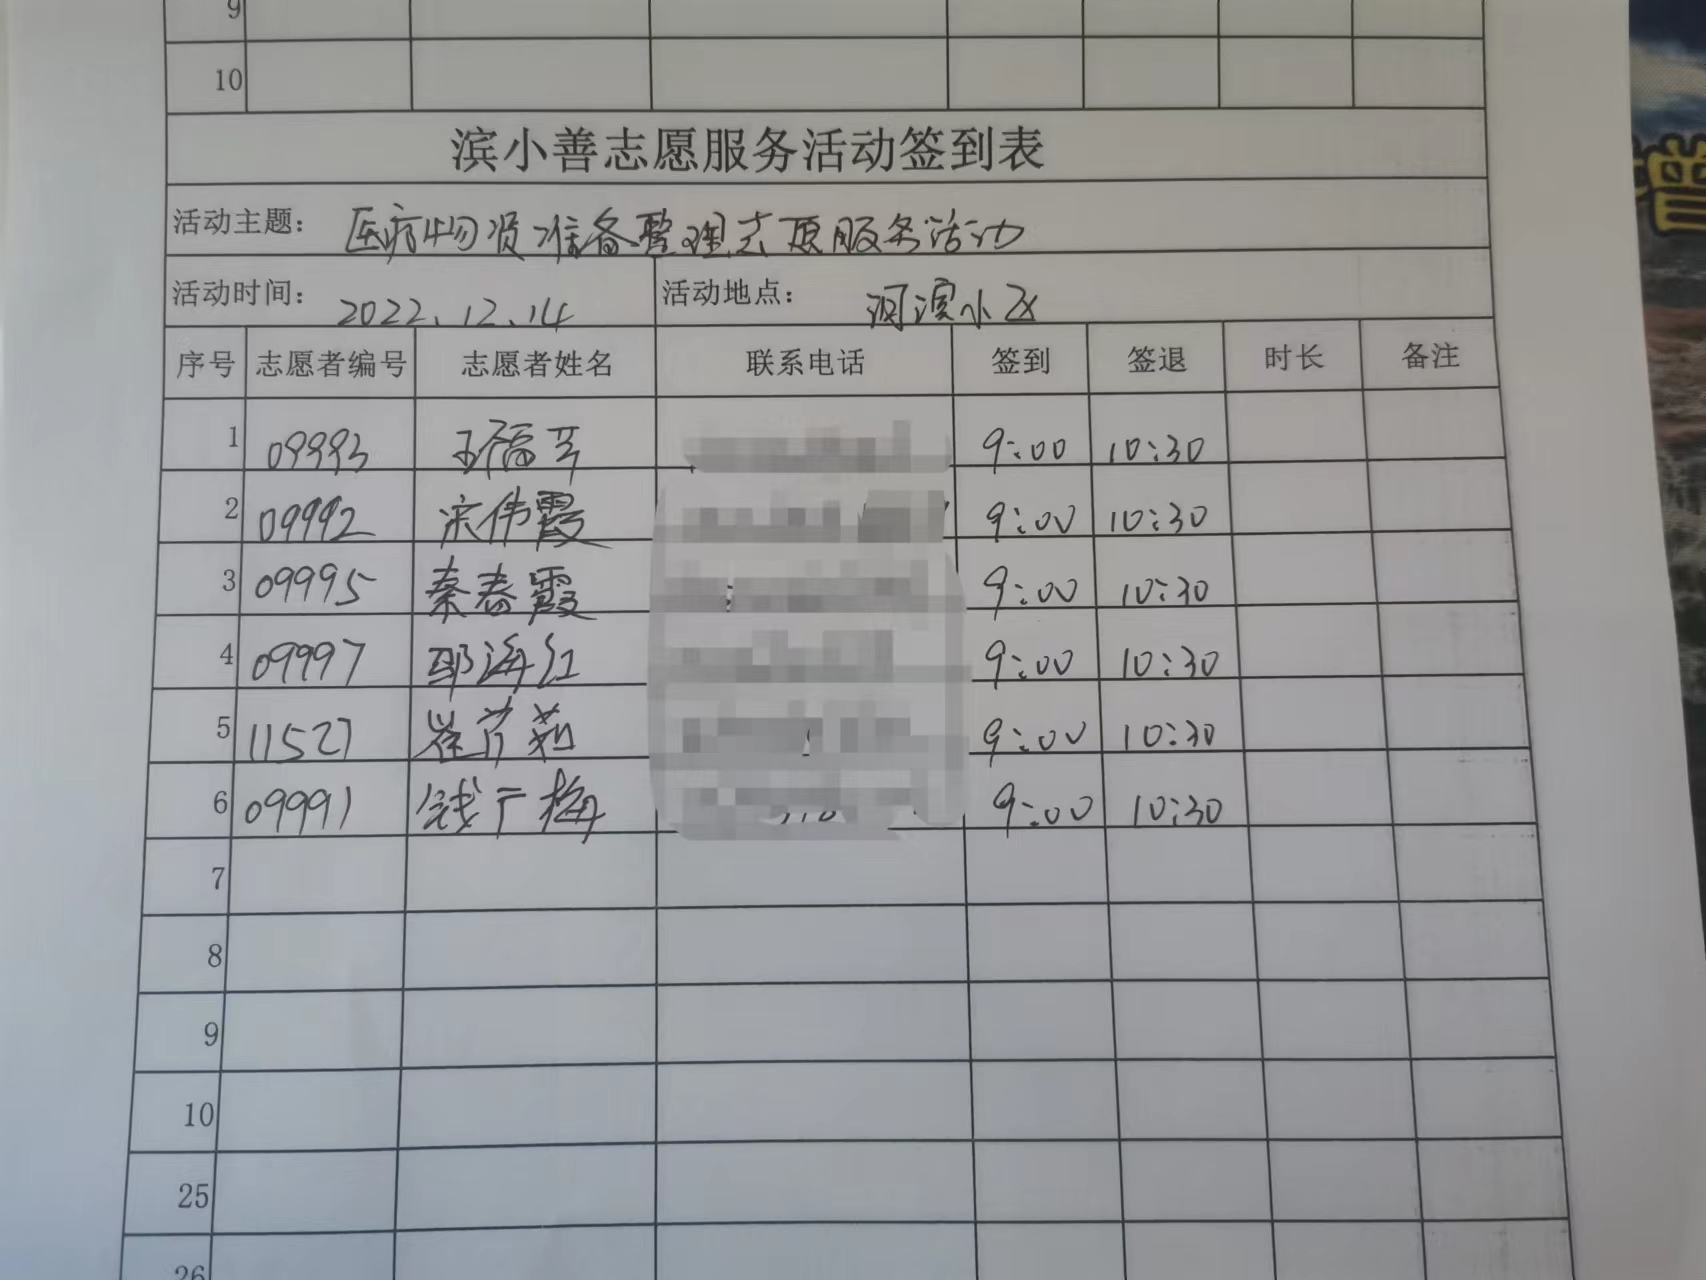 9
10
滨小善志愿服务活动签到表
活动主题： 医疗物资准备整理志愿服务活动
活动时间： 2022.12.14 活动地点： 河滨小区
序号 志愿者编号 志愿者姓名 联系电话 签到 签退 时长 备注
1 09993 王福芝 9:00 10:30
2 09992 宋伟霞 9:00 10:30
3 09995 秦春霞 9:00 10:30
4 09997 邵海红 9:00 10:30
5 11527 崔芹莉 9:00 10:30
6 09991 钱广梅 9:00 10:30
7
8
9
10
25
26
增